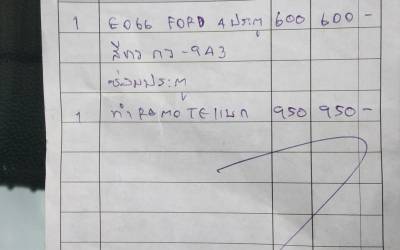 1 6066 FORD 4ประตู 600 600 -
สีขาว กว - 9A3
ซ่อมประตู
1 ทำ REMOTEแบก 950 950 -